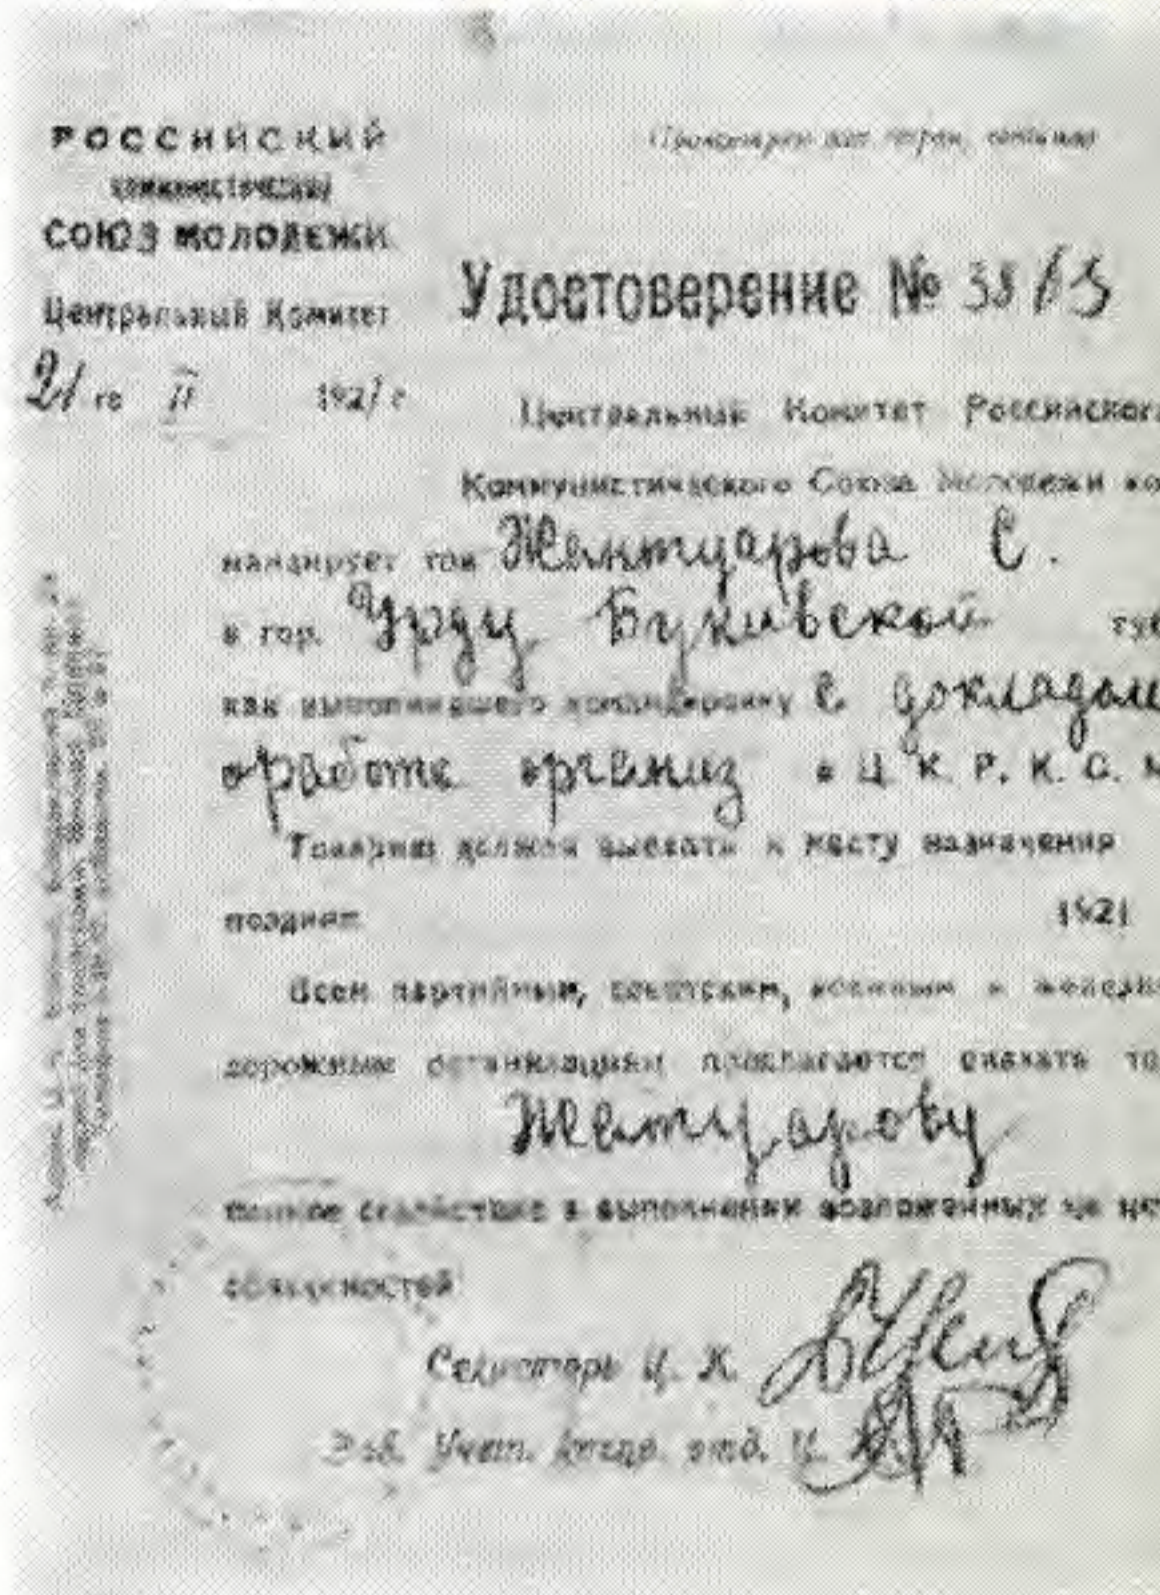 РОССИЙСКИЙ
КОММУНИСТИЧЕСКИЙ
СОЮЗ МОЛОДЕЖИ
Центральный Комитет
21 го II 1921 г
Пролетарии всех стран,
Удостоверение № 3863
Центральный Комитет Российского
Коммунистического Союза Молодежи ко
мандирует тов Жантуарова С.
в гор. Урду Букивской губ
как выполнившего командировку с докладом
о работе организ в Ц К. Р. К. С. М
Товарищ должен выехать к месту назначения
позднее 1921
Всем партийным, советским, военным и железно
дорожным организациям предлагается оказать то
Жантуарову
полное содействие в выполнении возложенных на не
обязанностей
Секретарь Ц. К.
Зав. Учетн. отд. Ц. К.